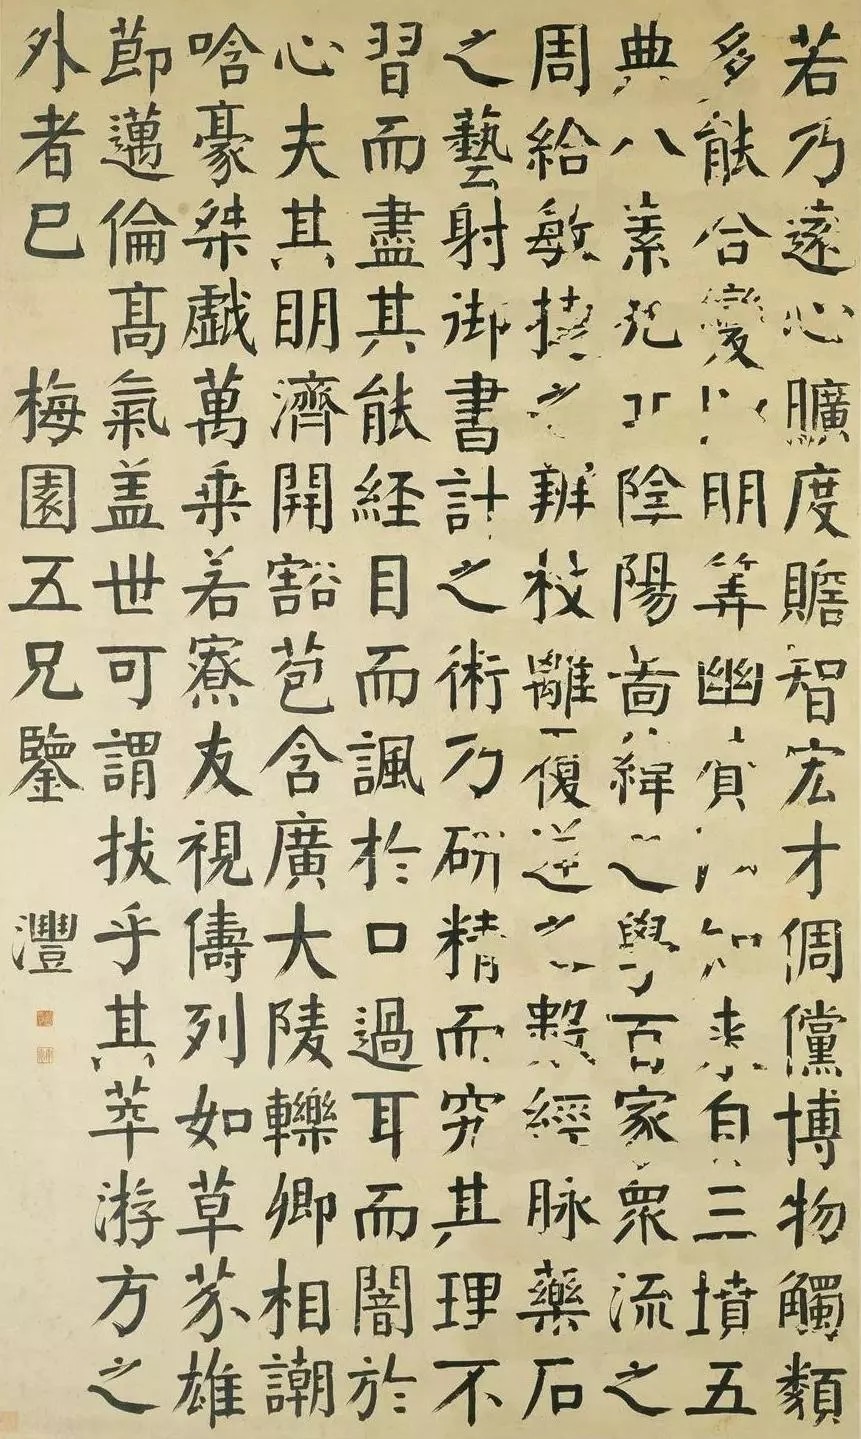 若乃遠心曠度贍智宏才倜儻博物觸類
多能合變以明筭幽賛以知来自三墳五
典八素九丘陰陽啚緯之學百家衆流之
周給敏捷之辨枝離覆逆之數經脉藥石
之藝射御書計之術乃研精而究其理不
習而盡其能経目而諷於口過耳而闇於
心夫其明濟開豁苞含廣大陵轢卿相謿
唅豪桀戯萬乗若寮友視儔列如草芥雄
莭邁倫髙氣盖世可謂拔乎其萃游方之
外者已 梅園五兄鑒 灃